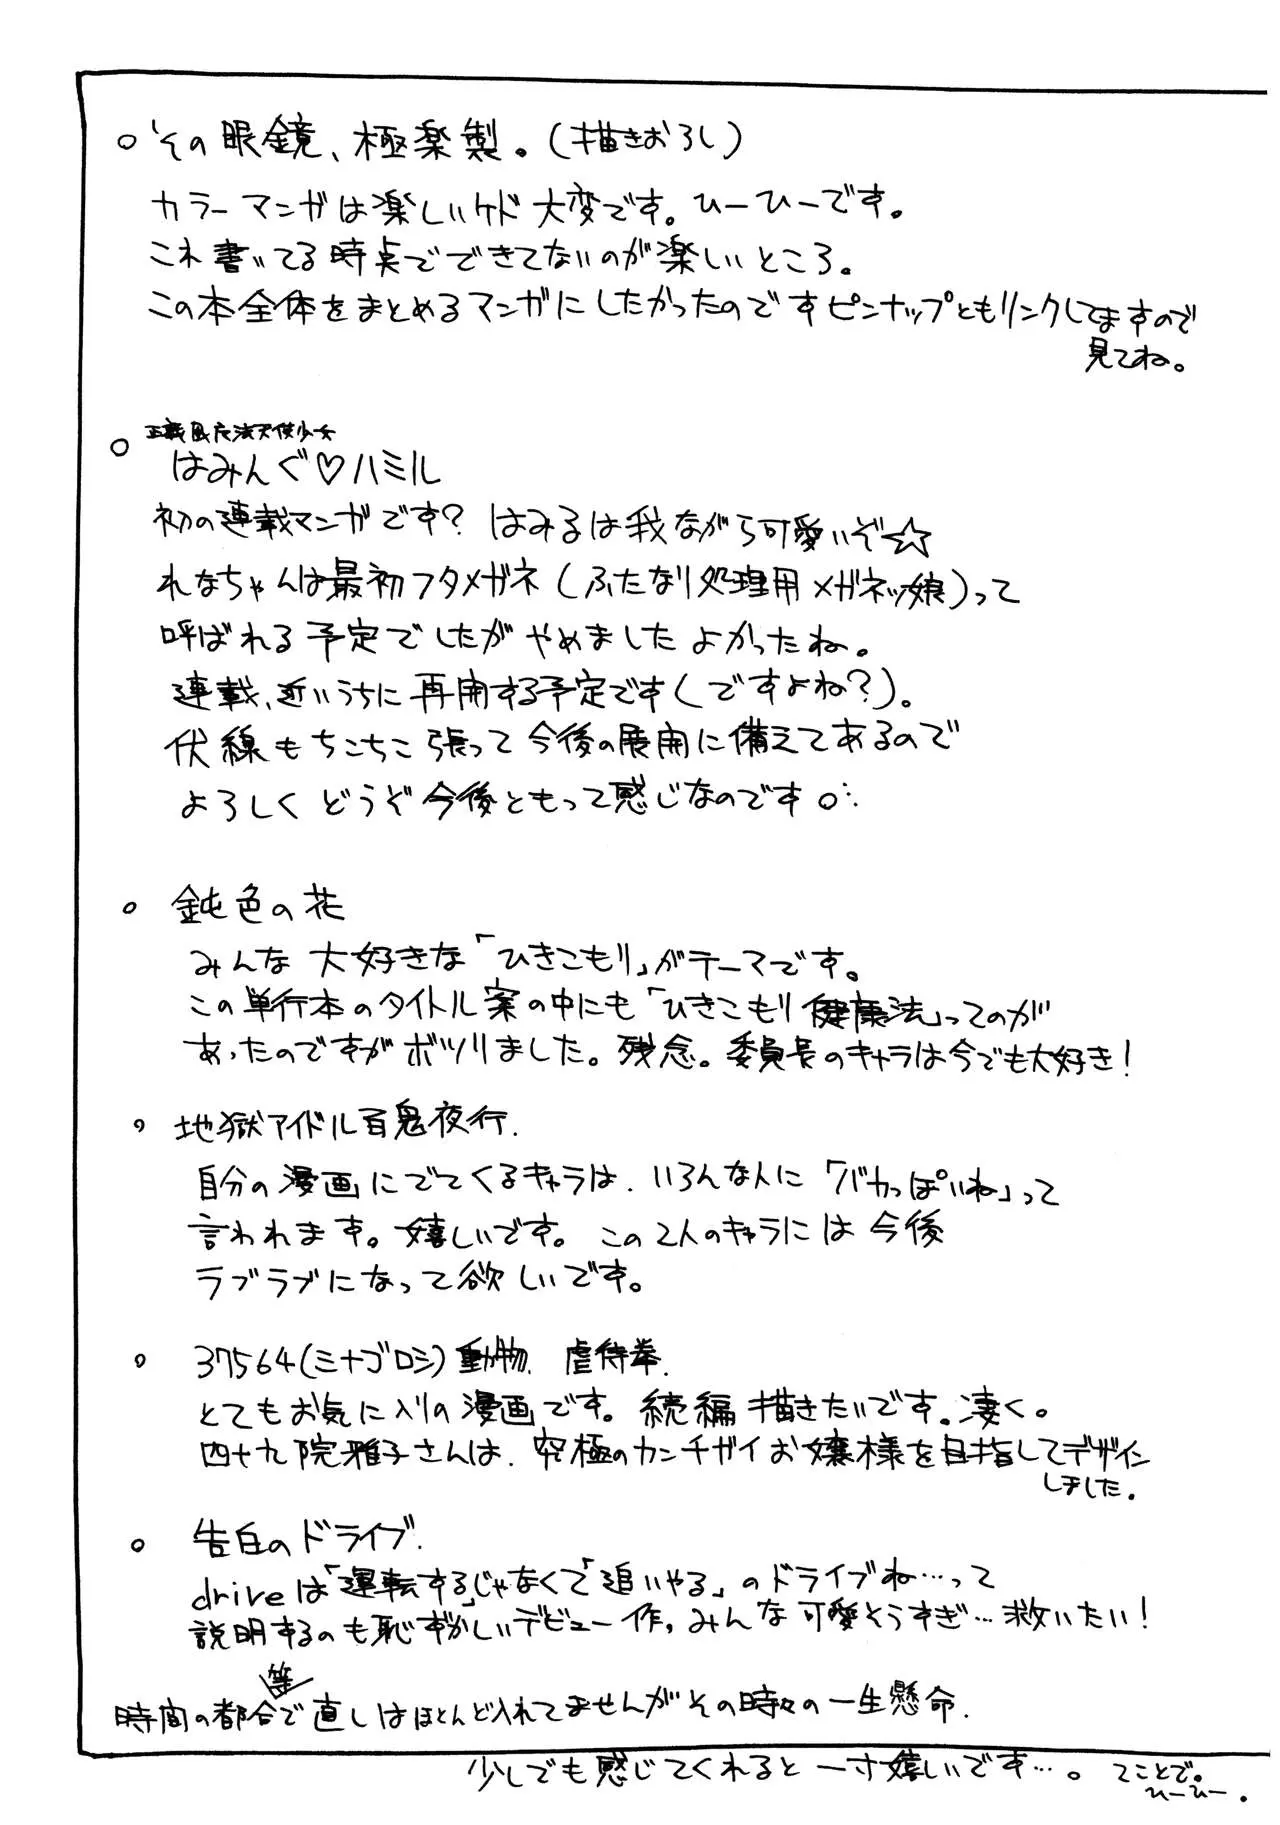 ○ その眼鏡、極楽製。(描きおろし)
カラーマンガは楽しいケド大変です。ひーひーです。
これ書いてる時点でできてないのが楽しいところ。
この本全体をまとめるマンガにしたかったのですピンナップともリンクしてますので
見てね。
○ はみんぐ♡ハミル
初の連載マンガです? はみるは我ながら可愛いぞ☆
れなちゃんは最初フタメガネ(ふたなり処理用メガネッ娘)って
呼ばれる予定でしたがやめましたよかったね。
連載、近いうちに再開する予定です(ですよね?)。
伏線もちこちこ張って今後の展開に備えてあるので
よろしくどうぞ今後ともって感じなのです
○ 鈍色の花
みんな大好きな「ひきこもり」がテーマです。
この単行本のタイトル案の中にも「ひきこもり健康法」ってのが
あったのですがボツりました。残念。委員長のキャラは今でも大好き!
○ 地獄アイドル百鬼夜行.
自分の漫画にでてくるキャラは、いろんな人に「バカっぽいね」って
言われます。嬉しいです。この2人のキャラには今後
ラブラブになって欲しいです。
○ 37564(ミナゴロシ)動物虐待拳.
とてもお気に入りの漫画です。続編描きたいです。凄く。
四十九院雅子さんは、究極のカンチガイお嬢様を目指してデザイン
しました。
○ 告白のドライブ.
driveは「運転する」じゃなくて「追いやる」のドライブね…って
説明するのも恥ずかしいデビュー作。みんな可愛そうすぎ…救いたい!
時間の都合等で直しはほとんど入れてませんがその時々の一生懸命.
少しでも感じてくれると一寸嬉しいです…。てことで。
ひーひー.